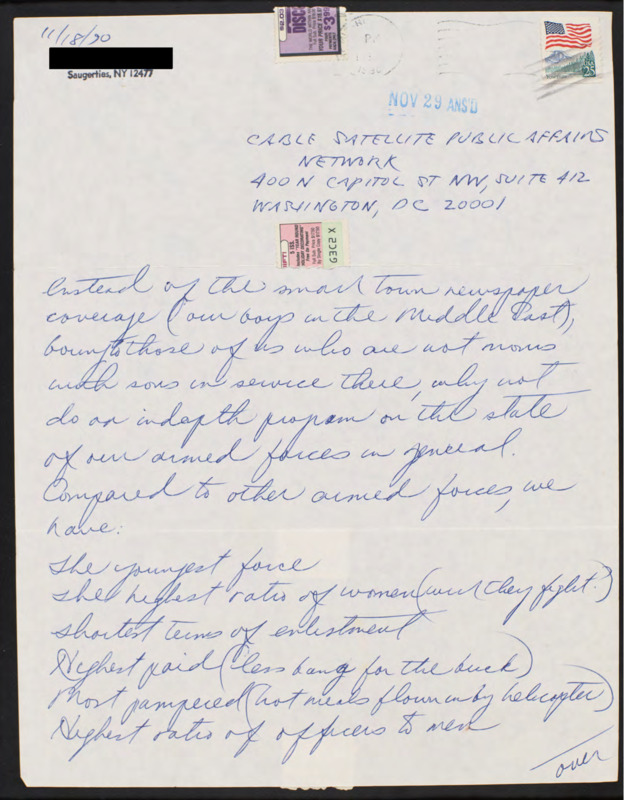 11/18/90
Saugerties, NY 12477
DISC
$3.99
25
NOV 29 ANS'D
CABLE SATELLITE PUBLIC AFFAIRS
NETWORK
400 N CAPITOL ST NW, SUITE 412
WASHINGTON, DC 20001
G3C2 X
Instead of the small town newspaper
coverage (our boys in the Middle East),
boring to those of us who are not moms
with sons in service there, why not
do an indepth program on the state
of our armed forces in general.
Compared to other armed forces, we
have:
The youngest force
The highest ratio of women (will they fight?)
Shortest terms of enlistment
Highest paid (less bang for the buck)
Most pampered (hot meals flown in by helicopter)
Highest ratio of officers to men
over